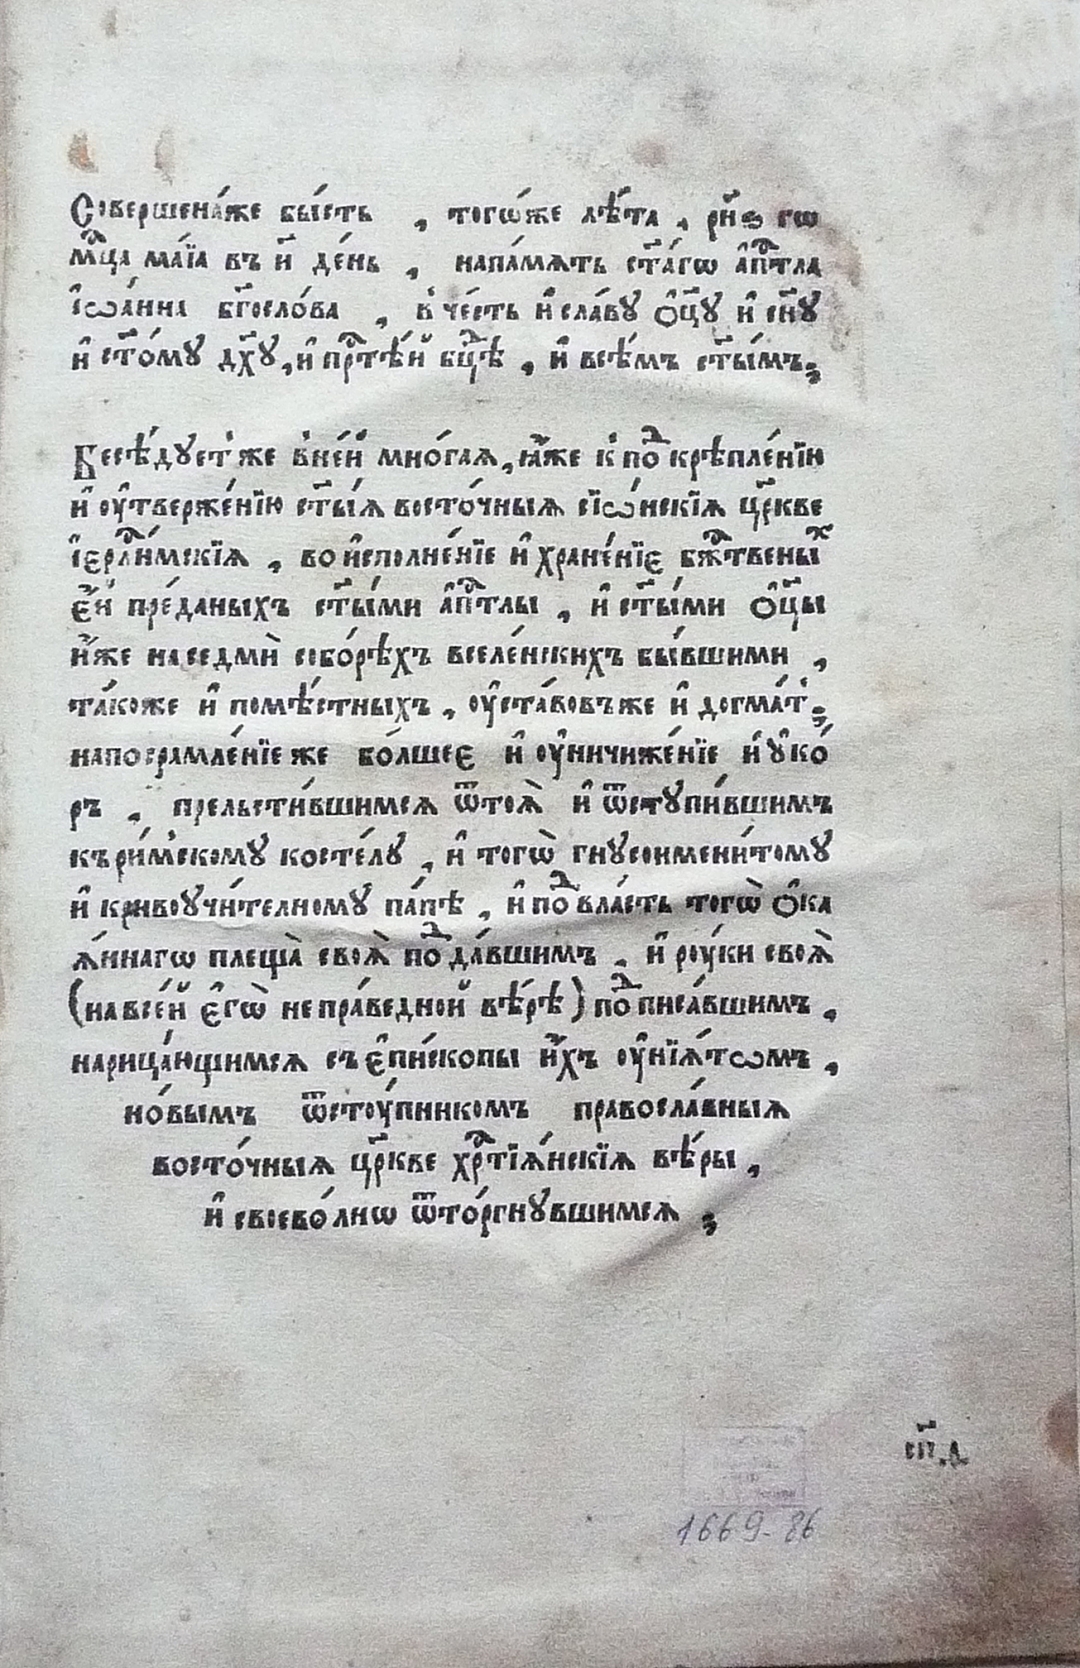 Совершена́же бы́сть , тогѡ́же лѣ́та , рн҃ѕ гѡ
мⷭ҇ца ма́їа въ и҃ де́нь , напа́мѧть ст҃а́гѡ а҆пⷭ҇тла
і҆ѡа́нна бг҃осло́ва , в҆ че́сть и҆ сла́ву ѻ҆ц҃у и҆ сн҃у
и҆ ст҃о́му дх҃у , и҆ прⷭ҇тѣ́й бцⷣѣ , и҆ всѣ́мъ ст҃ы́мъ ;
Бесѣ́дует же в҆не́й мно́гаѧ , ꙗ҆́же к҆ поⷣкрѣпле́нїю
и҆ ᲂу҆тверже́нїю ст҃ы́ѧ восто́чныѧ сїѡ́нскїѧ цр҃кве
і҆ерⷭ҇ли́мскїѧ , во и҆сполне́нїе и҆ хране́нїе бжⷭ҇твеныⷯ
є҆́й пре́даныхъ ст҃ы́ми а҆пⷭ҇тлы , и҆ ст҃ы́ми ѻ҆ц҃ы
и҆́же на седми̂ собо́рѣхъ вселе́нскихъ бы́вшими ,
та́коже и҆ помѣ́стныхъ , ᲂу҆ста́вовъ же и҆ догма́т ;
на посрамле́нїе же бо́лшее и҆ ᲂу҆ничиже́нїе и҆ ꙋ҆ко́
ръ , прельсти́вшимсѧ ѿ тоѧ̀ и҆ ѿступи́вшимъ
къ ри́мскому косте́лу , и҆ тогѡ̀ гнусоимени́тому
и҆ кривоучи́телному па́пѣ , и҆ поⷣ вла́сть тогѡ̀ ѻ҆ка
ѧ́ннагѡ плеща̀ своѧ̀ поⷣда́вшимъ , и҆ рᲂу́ки своѧ̀
(на все́й є҆гѡ̀ непра́ведной вѣ́рѣ) поⷣписа́вшимъ ,
нарица́ющимсѧ съ є҆пи́скопы и҆́хъ ᲂу҆нїѧ́тѡмъ ,
но́вымъ ѿстᲂу́пником​ъ правосла́вныѧ
восто́чныѧ цр҃кве хрⷭ҇тїѧ́нскїѧ вѣ́ры ,
и҆ своево́лнѡ ѿто́ргнувшимсѧ ;
сп҃.д
1669-86